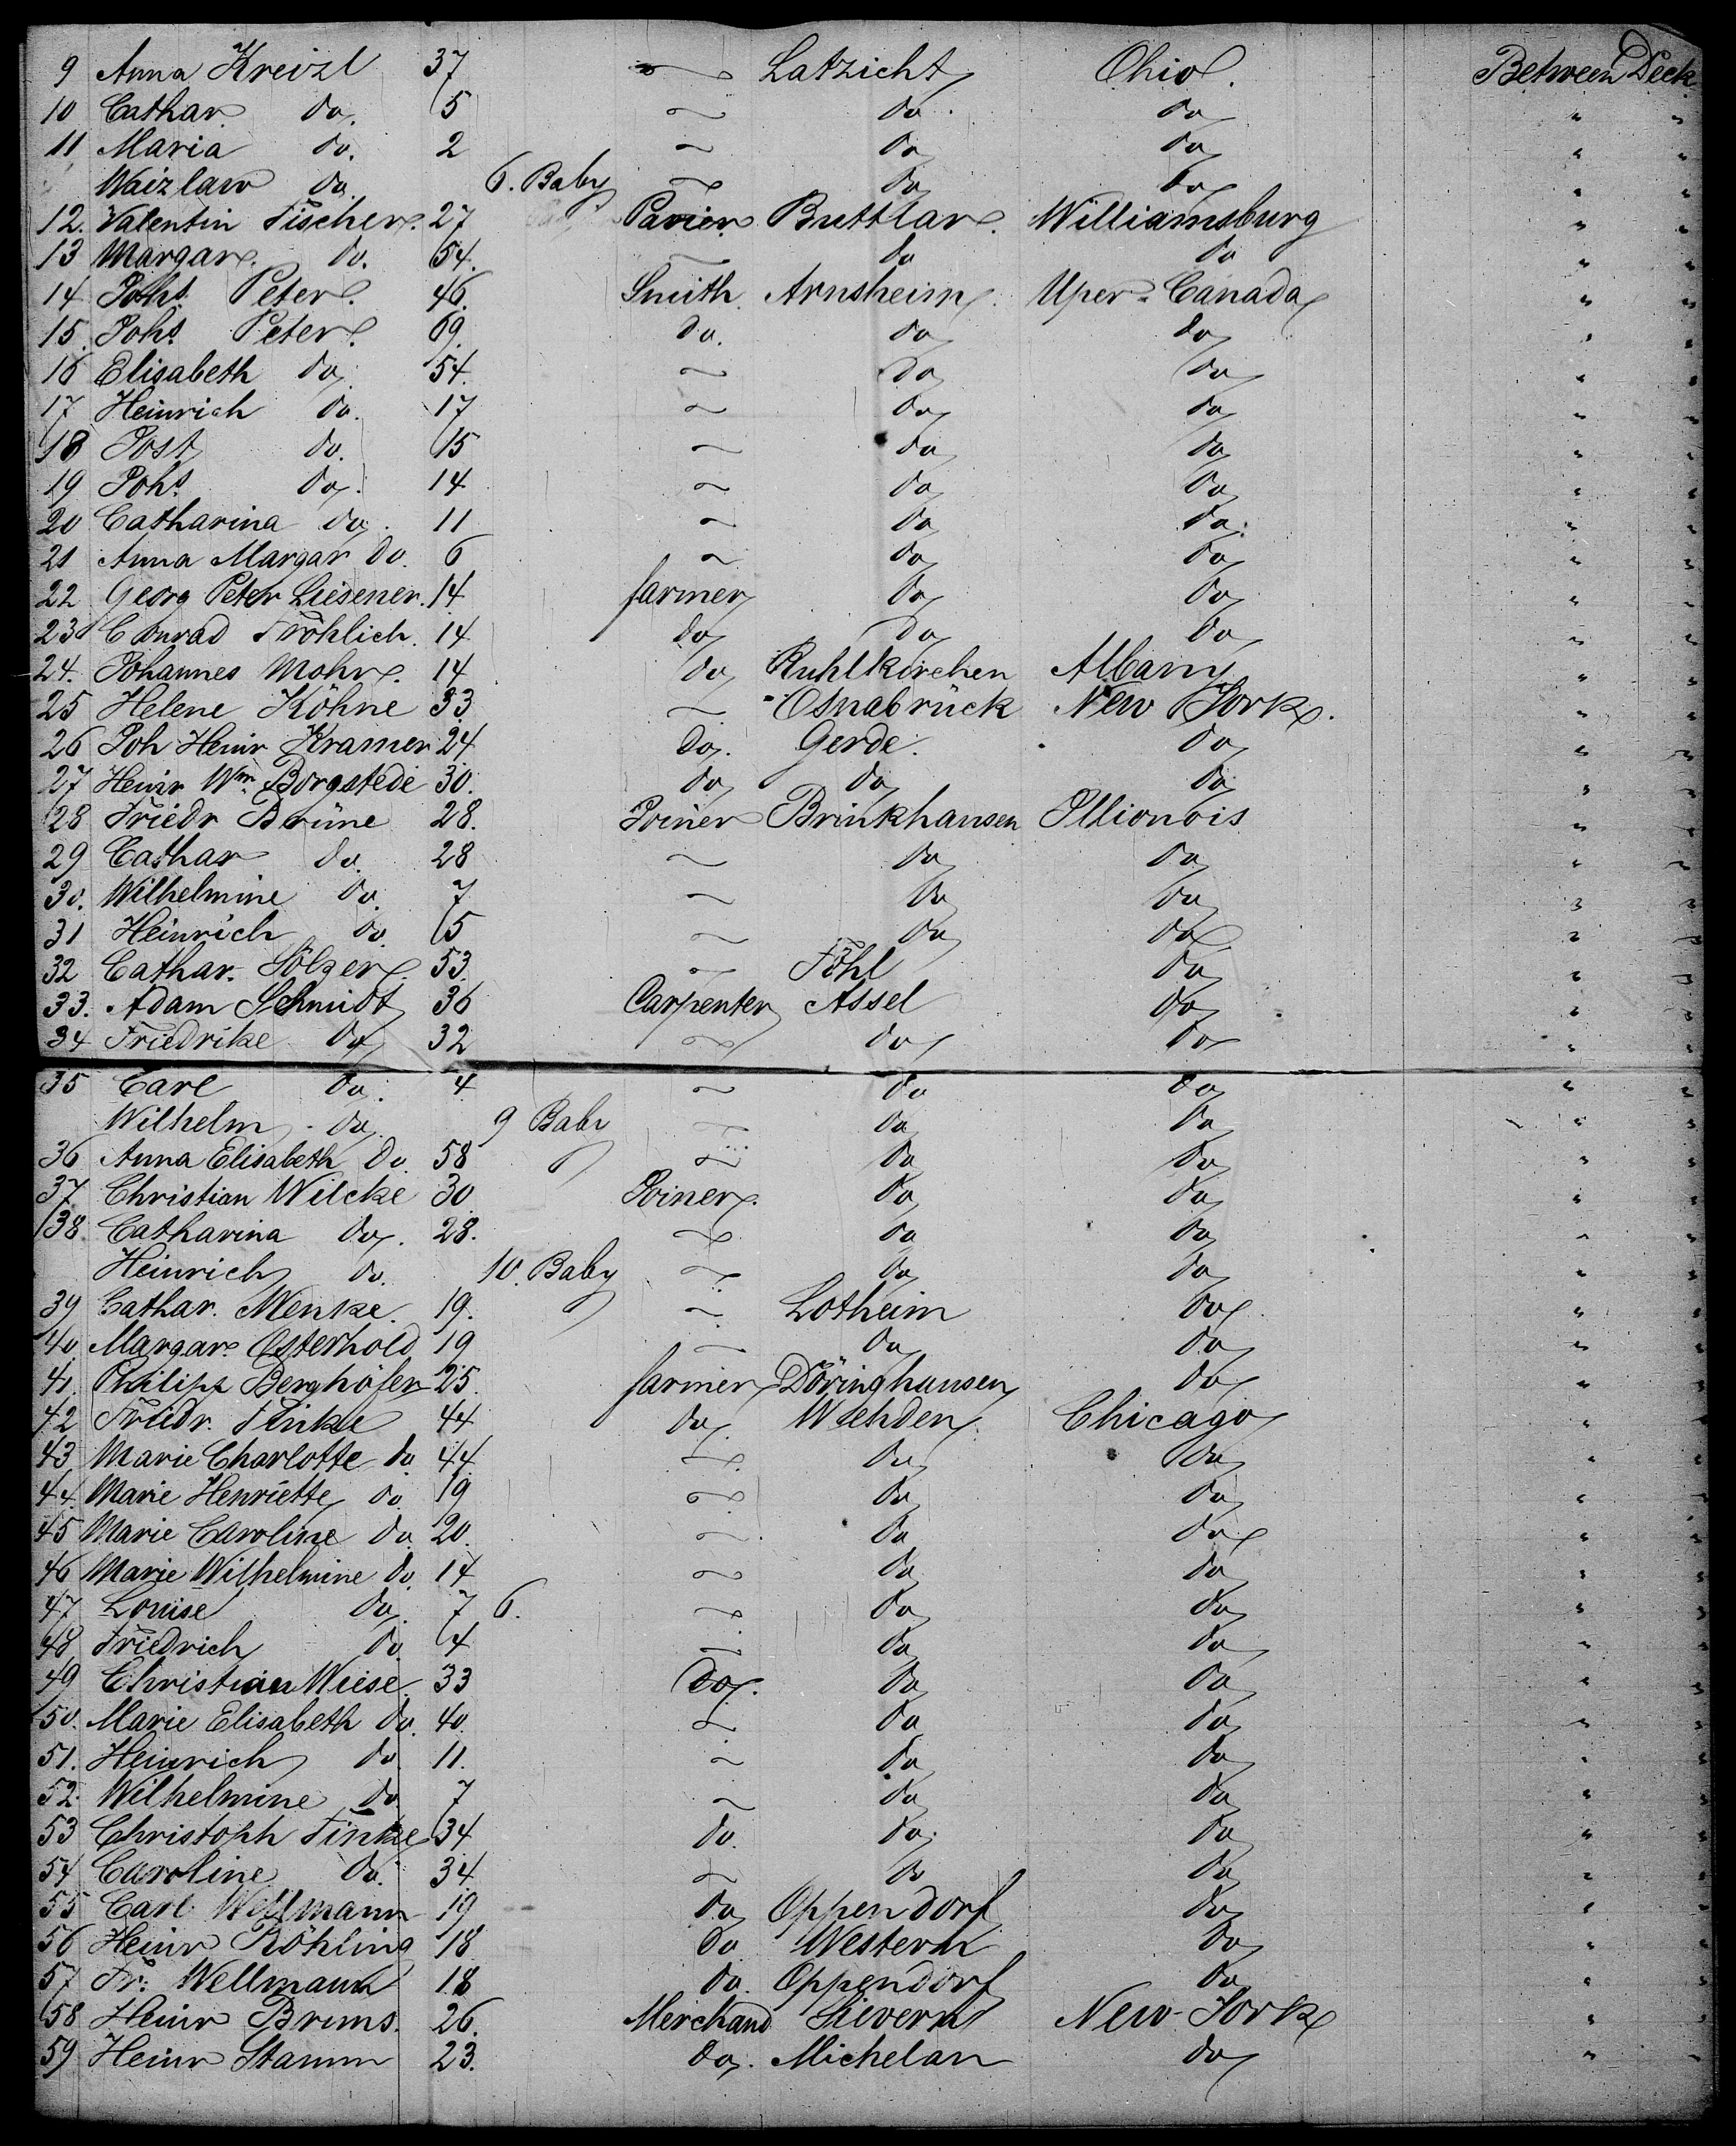 9 Anna Kreizl 37 ~ Latzicht Ohio. Between Deck
10 Cathar do. 5 ~ do. do " "
11 Maria do. 2 ~ do do " "
Waizlaw do. 6. Baby ~ do do " "
12. Valentin Fischer. 27 Pavier Buttlar. Williamsburg " "
13 Margar. do. 54. ~ do do " "
14 Johs. Peter. 46. Smith Arnsheim. Uper-Canada " "
15. Johs. Peter. 69. do. do do " "
16 Elisabeth do. 54. ~ do do " "
17 Heinrich do. 17 ~ do do " "
18 Jost do. 15 ~ do do " "
19 Johs. do. 14 ~ do do " "
20 Catharina do. 11 ~ do do. " "
21 Anna Margar do. 6 ~ do do " "
22 Georg Peter Liesener. 14 farmer do do " "
23 Conrad Fröhlich. 14 do do do " "
24. Johannes Mohr. 14 do Ruhlkirchen Albany " "
25 Helene Köhne 33 ~ Osnabrück New York. " "
26 Joh Heinr Kramer 24 do. Gerde. do " "
27 Heinr Wm. Borgstede 30. do do do " "
28 Friedr Brüne 28. Joiner Brinkhausen Illionois " "
29 Cathar do. 28 ~ do do " "
30. Wilhelmine do. 7 ~ do do " "
31 Heinrich do. 5 ~ do do " "
32 Cathar. Sölzer. 53. ~ Föhl do " "
33. Adam Schmidt 36 Carpenter Assel do " "
34 Friedrike do 32 ~ do do " "
35 Carl do. 4 ~ do do " "
Wilhelm do. 9 Baby ~ do do " "
36 Anna Elisabeth do. 58 ~ do do " "
37 Christian Wilcke 30 Joiner. do do " "
38. Catharina do. 28. ~ do do " "
Heinrich do. 10. Baby ~ do do " "
39 Cathar. Menke. 19. ~ Lotheim do " "
40. Margar. Osterhold 19 ~ do do " "
41. Philipp Berghöfer 25. farmer Döringhausen do " "
42 Friedr. Finke 44 do. Wehden. Chicago " "
43 Marie Charlotte do 44 ~ do do " "
44. Marie Henriette do. 19 ~ do do " "
45 Marie Caroline do. 20. ~ do do " "
46 Marie Wilhelmine do. 14 ~ do do " "
47 Louise do. 7 6. ~ do do " "
48 Friedrich do. 4 ~ do do " "
49 Christian Wiese. 33 do. do do " "
50. Marie Elisabeth do. 40. ~ do do " "
51. Heinrich do. 11. ~ do do " "
52. Wilhelmine do. 7 ~ do do " "
53 Christoph Finke 34 do. do. do " "
54 Caroline do. 34 ~ do do " "
55 Carl Willmann 19 do Oppendorf do " "
56 Heinr Röhling 18 do Western do " "
57 Fr. Wellmann 18 do. Oppendorf do " "
58 Heinr Brims. 26. Merchand Sievern New-York " "
59 Heinr Stamm 23. do. Michelan do " "